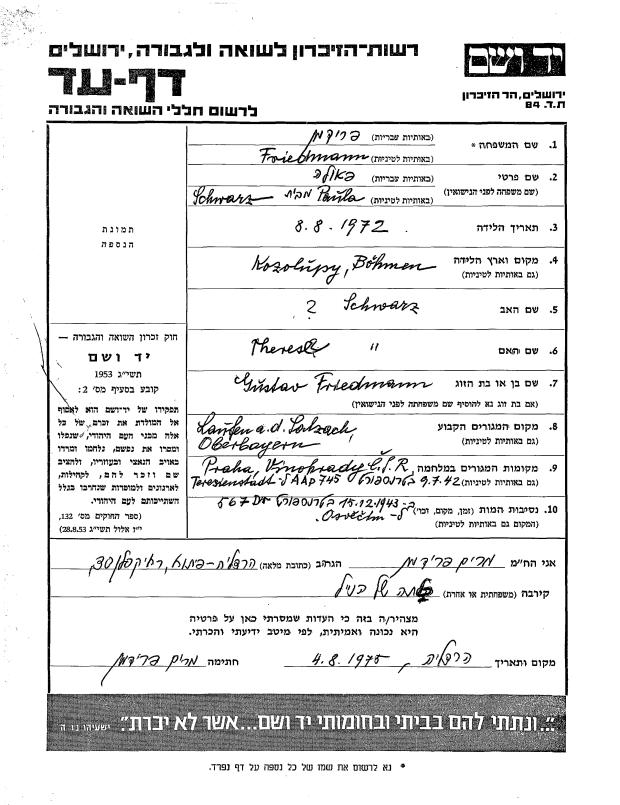 יד ושם
ירושלים, הר הזיכרון
ת.ד. 84
רשות-הזיכרון לשואה ולגבורה, ירושלים
דף-עד
לרשום חללי השואה והגבורה
1. שם המשפחה * (באותיות עבריות) פרידמן
(באותיות לטיניות) Friedmann
2. שם פרטי (באותיות עבריות) פאולה
(שם משפחה לפני הנישואין) (באותיות לטיניות) Paula מבית Schwarz
3. תאריך הלידה 8.8.1972
4. מקום וארץ הלידה Kozolupy, Böhmen
(גם באותיות לטיניות)
5. שם האב ? Schwarz
6. שם האם Therese "
7. שם בן או בת הזוג Gustav Friedmann
(אם בת זוג נא להוסיף שם משפחתה לפני הנישואין)
8. מקום המגורים הקבוע Laufen a.d. Salzach,
(גם באותיות לטיניות) Oberbayern
9. מקומות המגורים במלחמה Praha, Vinohrady Č.S.R.
(גם באותיות לטיניות) 9.7.42 בטרנספורט AAp 745 ל Teresienstadt
10. נסיבות המות (זמן, מקום, וכו') ב- 15.12.1943 בטרנספורט 567
(המקום גם באותיות לטיניות) ל- Osvěčim
תמונת
הנספה
חוק זכרון השואה והגבורה —
יד ושם
תשי"ג 1953
קובע בסעיף מס' 2:
תפקידו של יד-ושם הוא לאסוף
אל המולדת את זכרם של כל
אלה מבני העם היהודי, שנפלו
ומסרו את נפשם, נלחמו ומרדו
באויב הנאצי ובעוזריו, ולהציב
שם וזכר להם, לקהילות,
לארגונים ולמוסדות שנחרבו בגלל
השתייכותם לעם היהודי.
(ספר החוקים מס' 132,
י"ז אלול תשי"ג 28.8.53)
אני הח"מ מרים פרידמן הגר/ה (כתובת מלאה) הרצליה-פיתוח,
קירבה (משפחתית או אחרת) כלתה של הנ"ל
מצהיר/ה בזה כי העדות שמסרתי כאן על פרטיה
היא נכונה ואמיתית, לפי מיטב ידיעתי והכרתי.
מקום ותאריך הרצליה, 4.8.1975 חתימה מרים פרידמן
"...ונתתי להם בביתי ובחומותי יד ושם...אשר לא יכרת". ישעיהו נו ה
* נא לרשום את שמו של כל נספה על דף נפרד.